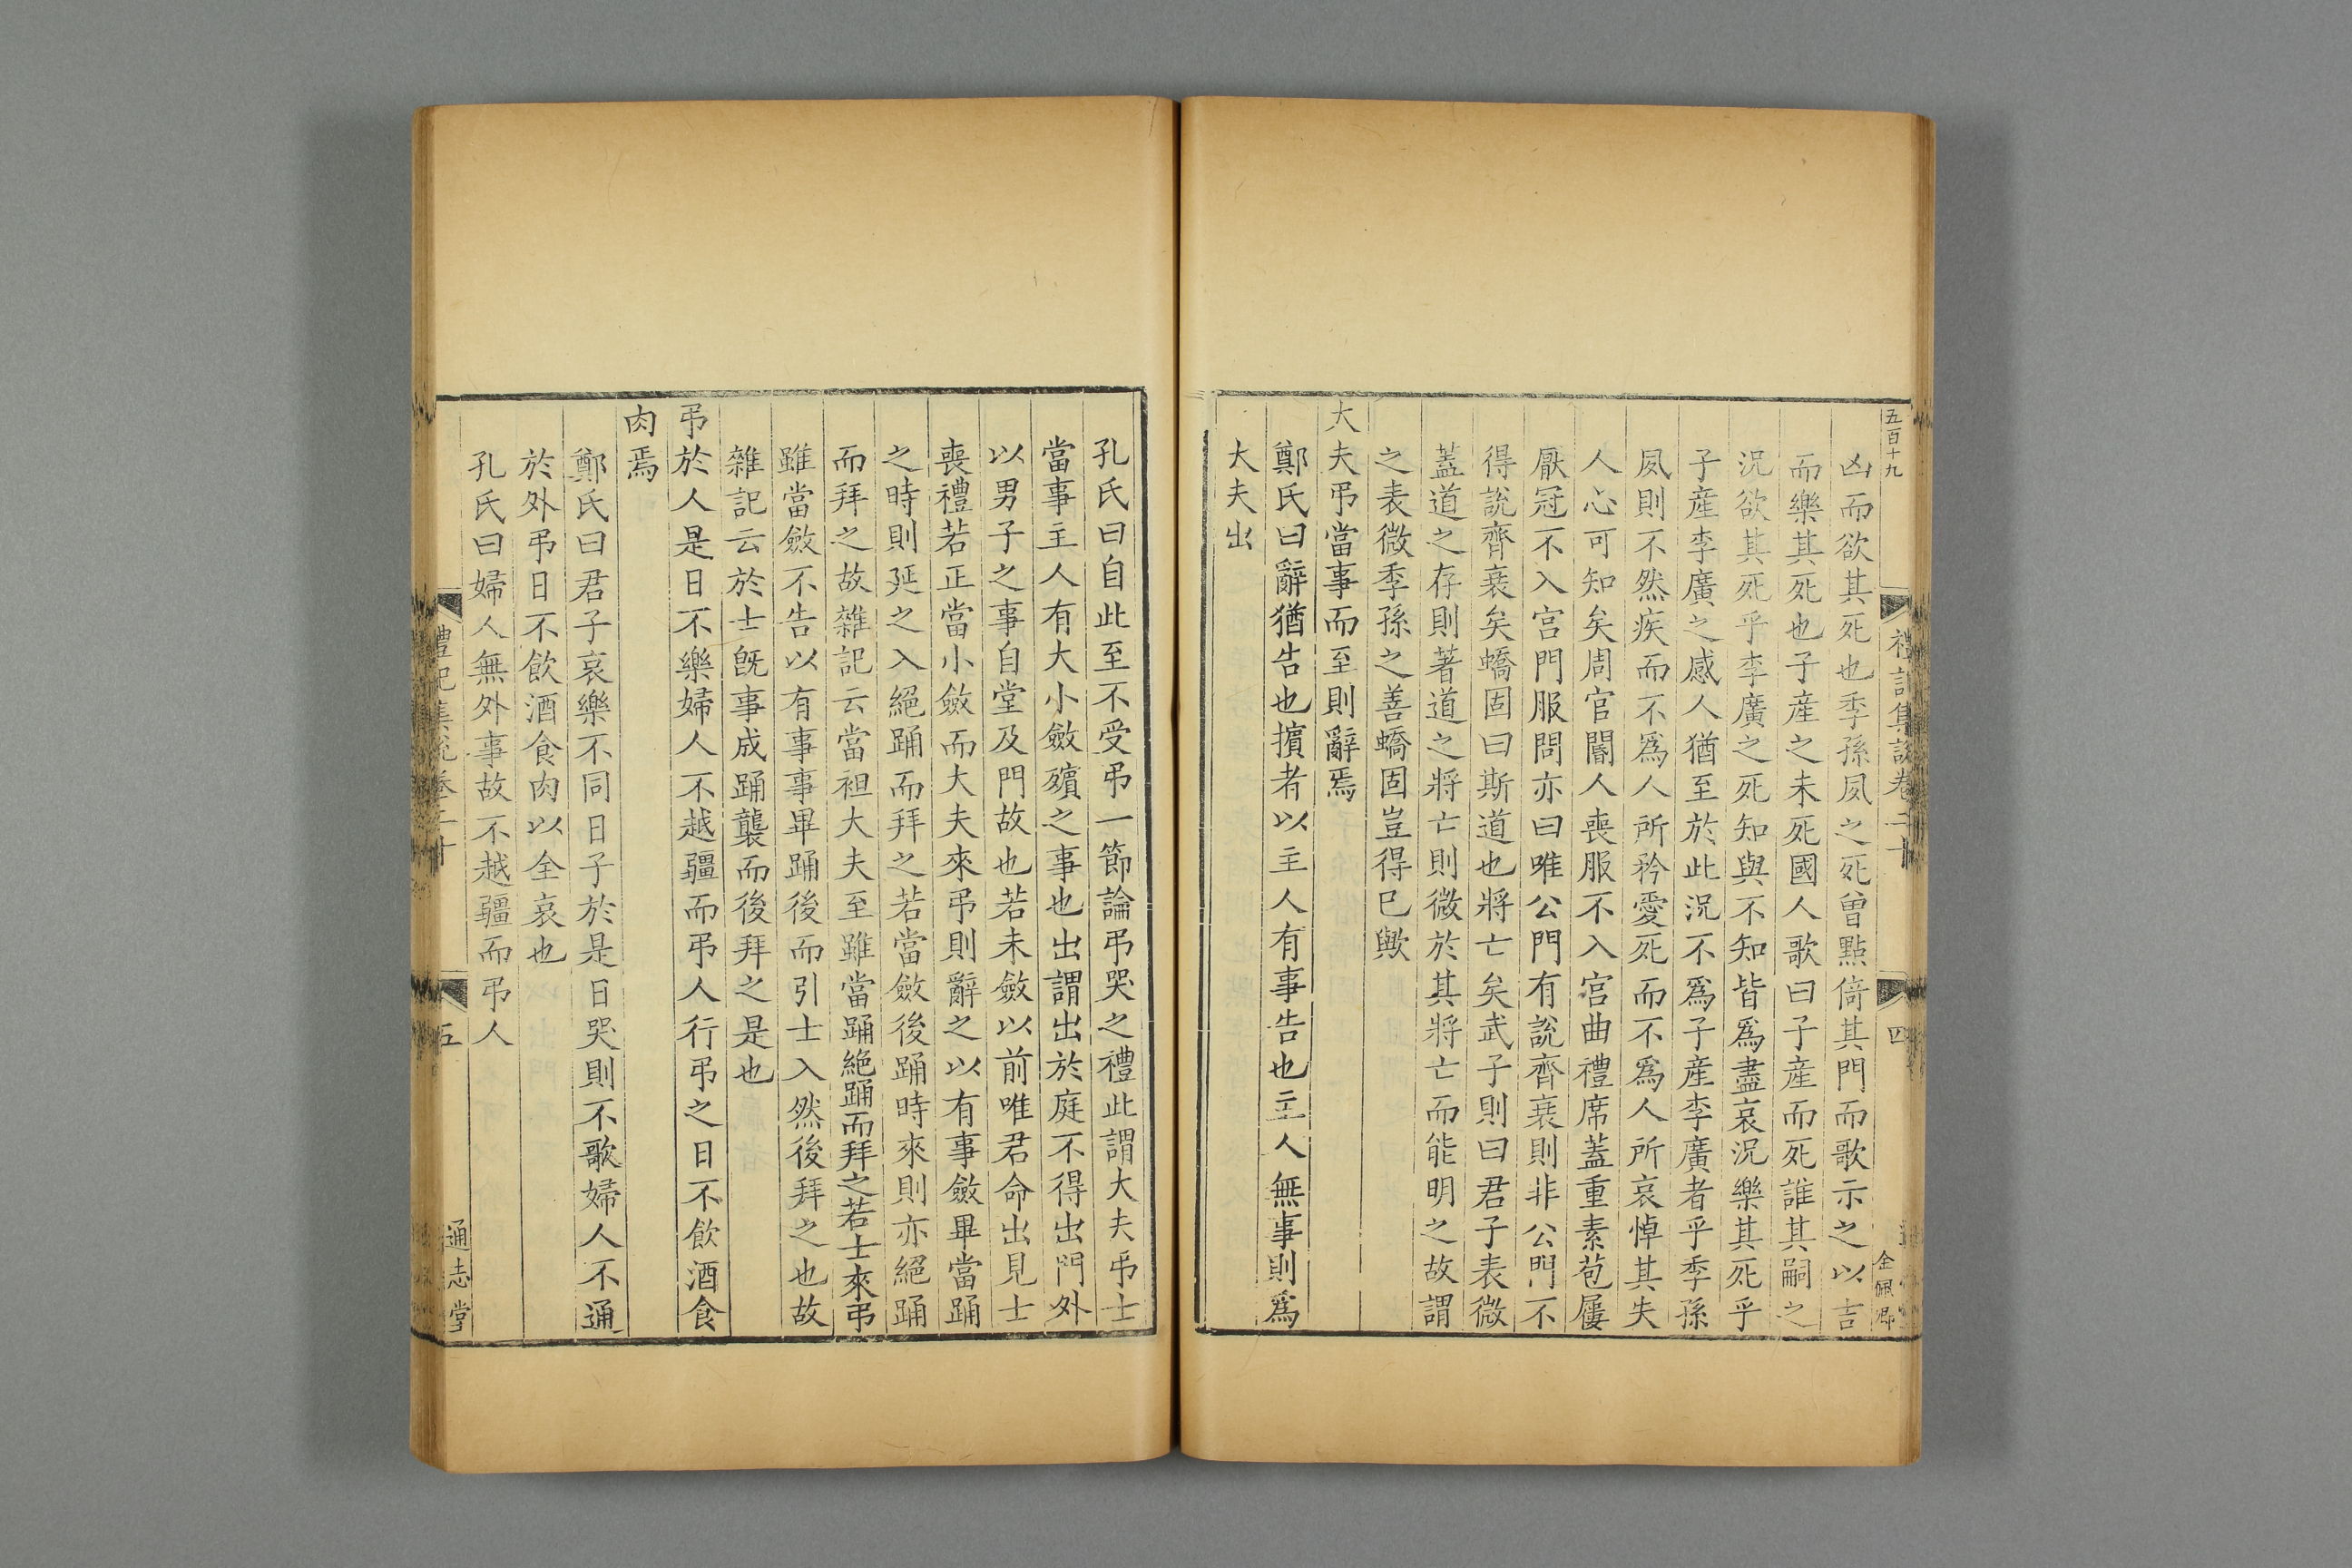 五百十九
禮記集說卷二十
四
金佩卿
凶而欲其死也季孫夙之死曾點倚其門而歌示之以吉
而樂其死也子產之未死國人歌曰子產而死誰其嗣之
況欲其死乎李廣之死知與不知皆爲盡哀況樂其死乎
子產李廣之感人猶至於此況不爲子產李廣者乎季孫
夙則不然疾而不爲人所矜愛死而不爲人所哀悼其失
人心可知矣周官閽人喪服不入宮曲禮席蓋重素苞屨
厭冠不入宮門服問亦曰唯公門有說齊衰則非公門不
得說齊衰矣蟜固曰斯道也將亡矣武子則曰君子表微
蓋道之存則著道之將亡則微於其將亡而能明之故謂
之表微季孫之善蟜固豈得已歟
大夫弔當事而至則辭焉
鄭氏曰辭猶告也擯者以主人有事告也主人無事則爲
大夫出
孔氏曰自此至不受弔一節論弔哭之禮此謂大夫弔士
當事主人有大小斂殯之事也出謂出於庭不得出門外
以男子之事自堂及門故也若未斂以前唯君命出見士
喪禮若正當小斂而大夫來弔則辭之以有事斂畢當踊
之時則延之入絕踊而拜之若當斂後踊時來則亦絕踊
而拜之故雜記云當袒大夫至雖當踊絕踊而拜之若士來弔
雖當斂不告以有事事畢踊後而引士入然後拜之也故
雜記云於士旣事成踊襲而後拜之是也
弔於人是日不樂婦人不越疆而弔人行弔之日不飲酒食
肉焉
鄭氏曰君子哀樂不同日子於是日哭則不歌婦人不通
於外弔日不飲酒食肉以全哀也
孔氏曰婦人無外事故不越疆而弔人
禮記集說卷二十
五
通志堂